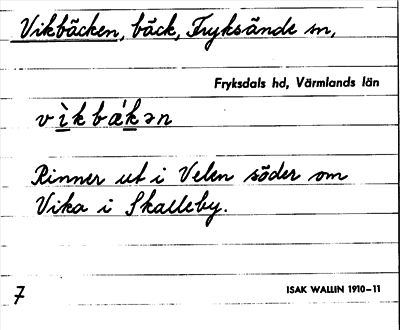 Vikbäcken, bäck, Fryksände sn,
Fryksdals hd, Värmlands län
vìkbækən
Rinner ut i Velen söder om
Vika i Skalleby.
7
ISAK WALLIN 1910–11